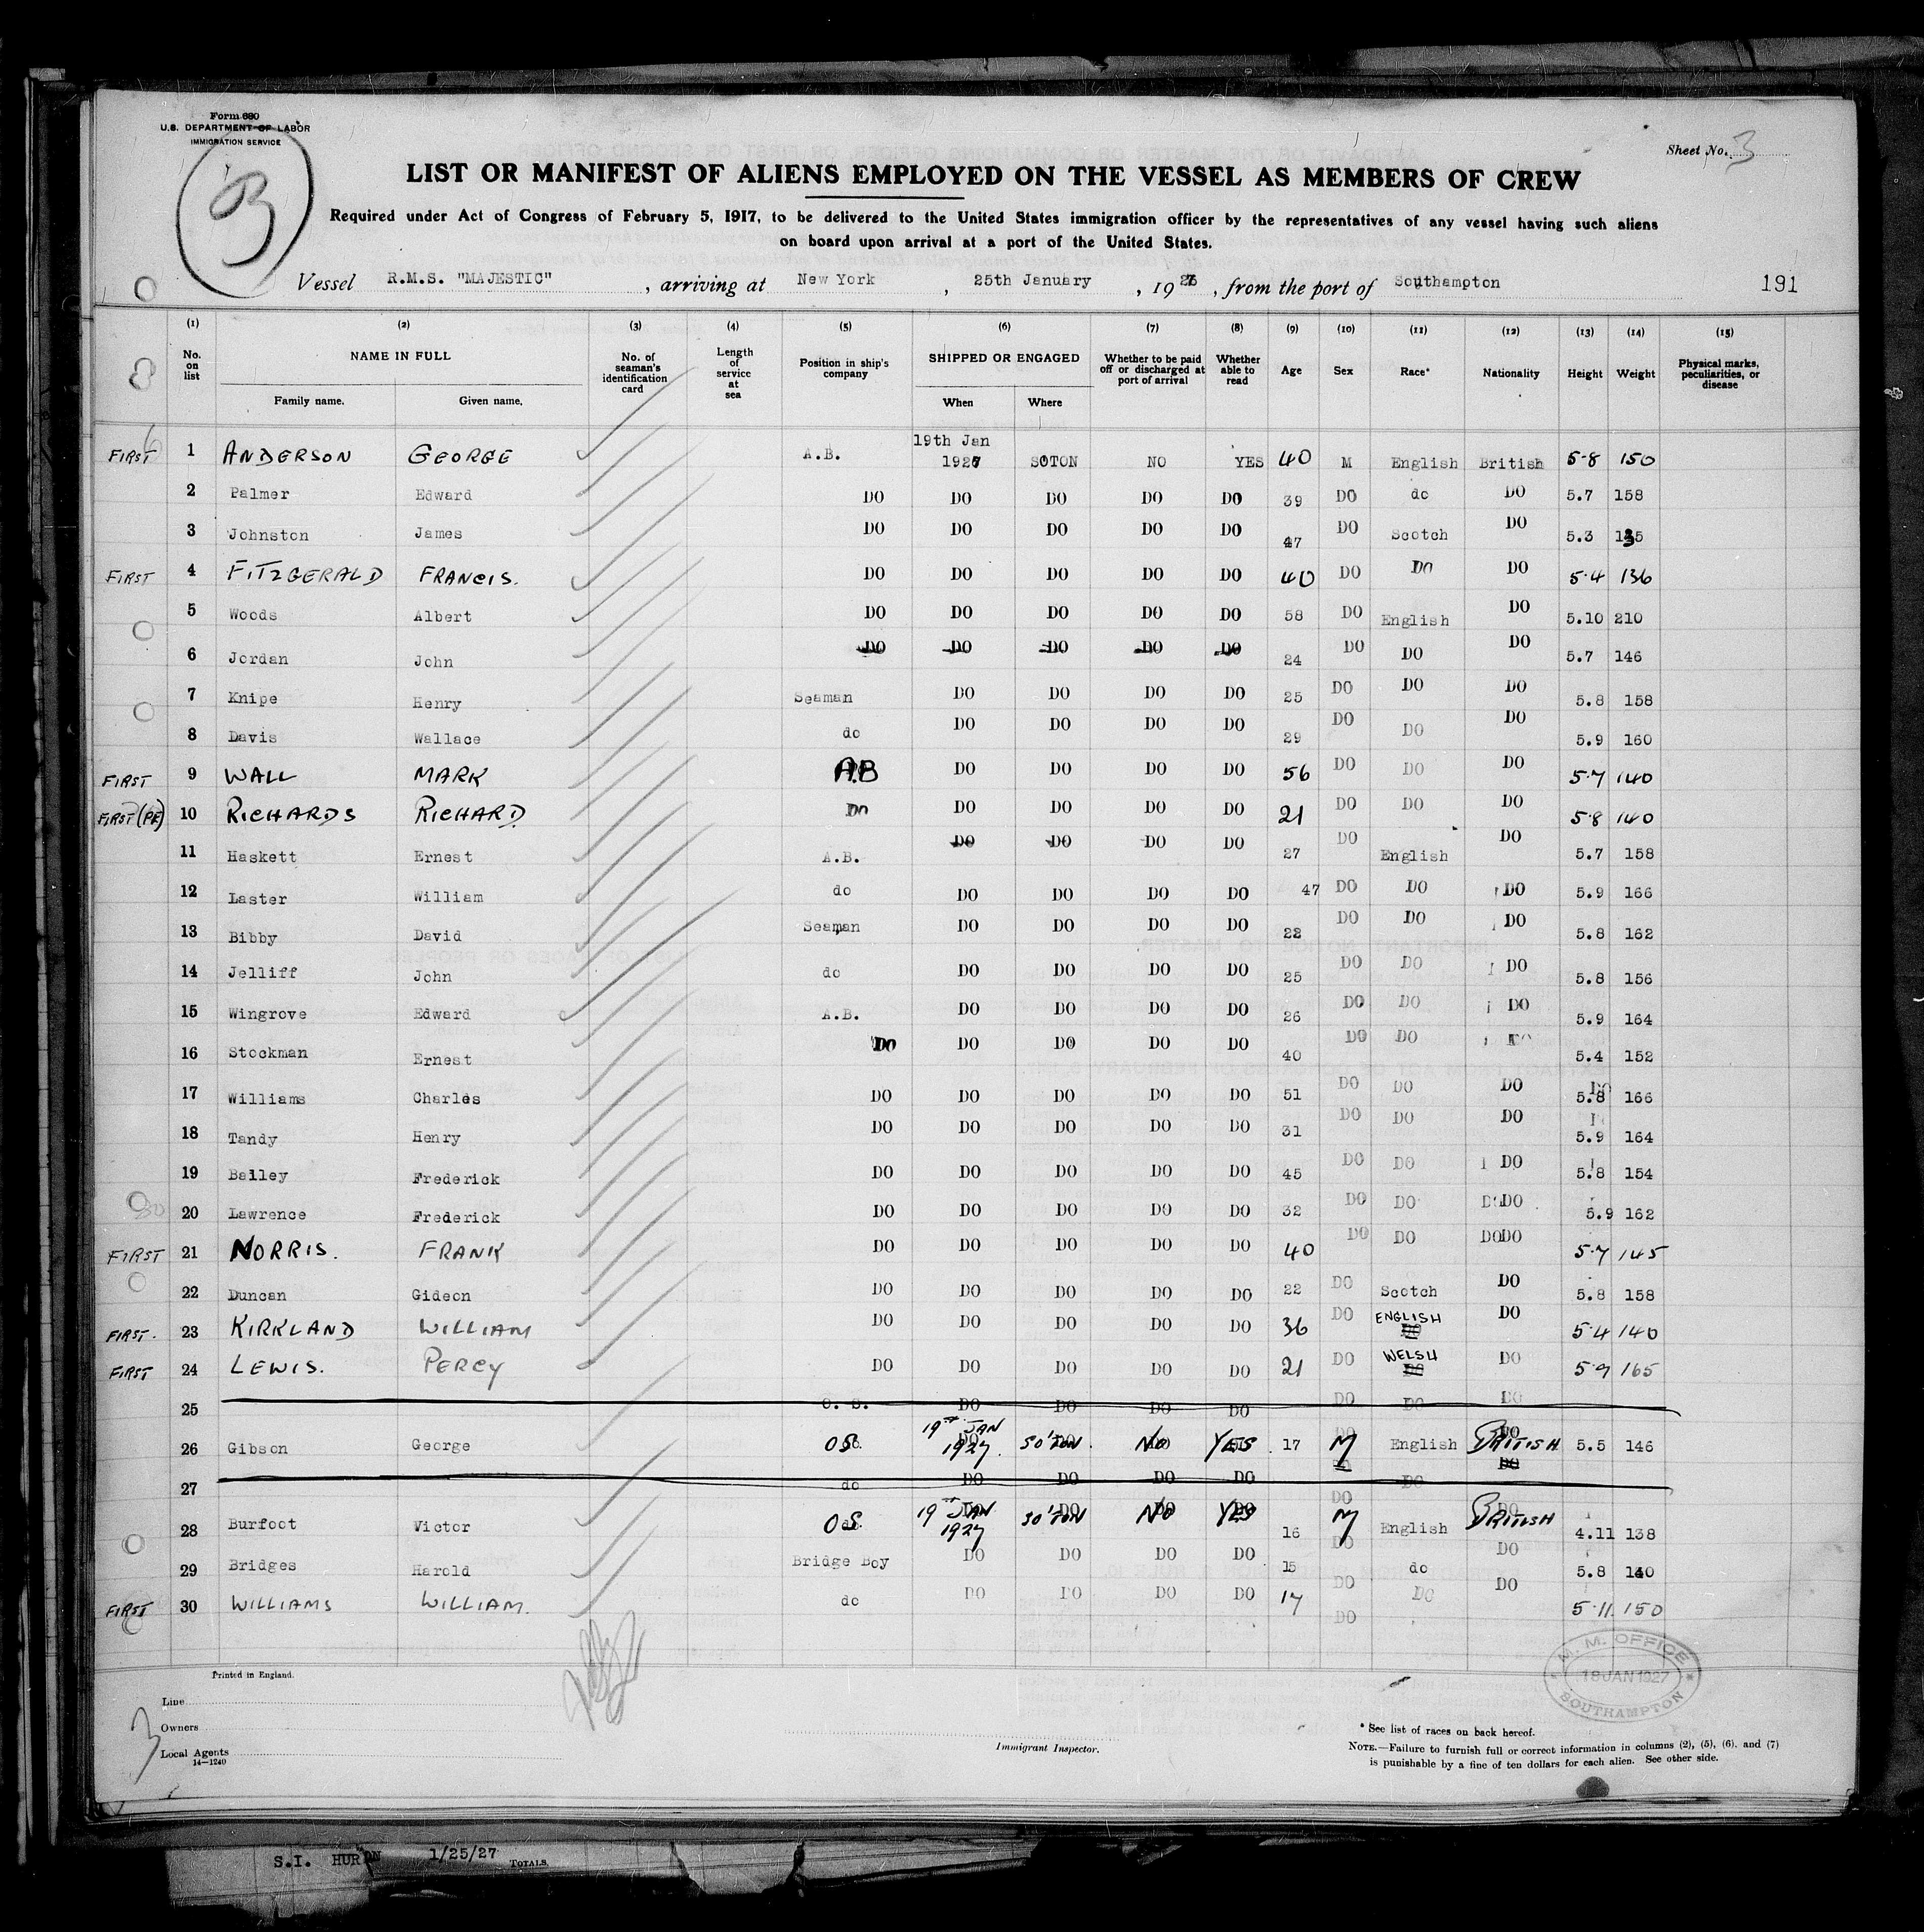 Form 680
U.S. DEPARTMENT OF LABOR
IMMIGRATION SERVICE
3
Sheet No. 3
LIST OR MANIFEST OF ALIENS EMPLOYED ON THE VESSEL AS MEMBERS OF CREW
Required under Act of Congress of February 5, 1917, to be delivered to the United States immigration officer by the representatives of any vessel having such aliens
on board upon arrival at a port of the United States.
Vessel R.M.S. "MAJESTIC" , arriving at New York , 25th January , 1927 , from the port of Southampton 191
(1) (2) (3) (4) (5) (6) (7) (8) (9) (10) (11) (12) (13) (14) (15)
No. on list NAME IN FULL Family name. Given name. No. of seaman's identification card Length of service at sea Position in ship's company SHIPPED OR ENGAGED When Where Whether to be paid off or discharged at port of arrival Whether able to read Age Sex Race* Nationality Height Weight Physical marks, peculiarities, or disease
FIRST 1 ANDERSON GEORGE A.B. 19th Jan 1927 SOTON NO YES 40 M English British 5-8 150
2 Palmer Edward DO DO DO DO DO 39 DO do DO 5.7 158
3 Johnston James DO DO DO DO DO 47 DO Scotch DO 5.3 135
FIRST 4 FITZGERALD FRANCIS. DO DO DO DO DO 40 DO DO DO 5.4 136
5 Woods Albert DO DO DO DO DO 58 DO English DO 5.10 210
6 Jordan John DO DO DO DO DO 24 DO DO DO 5.7 146
7 Knipe Henry Seaman DO DO DO DO 25 DO DO DO 5.8 158
8 Davis Wallace do DO DO DO DO 29 DO DO DO 5.9 160
FIRST 9 WALL MARK A.B DO DO DO DO 56 DO DO DO 5.7 140
FIRST (PE) 10 RICHARDS RICHARD. DO DO DO DO DO 21 DO DO DO 5.8 140
11 Haskett Ernest A.B. DO DO DO DO 27 DO English DO 5.7 158
12 Laster William do DO DO DO DO 47 DO DO DO 5.9 166
13 Bibby David Seaman DO DO DO DO 22 DO DO DO 5.8 162
14 Jelliff John do DO DO DO DO 25 DO DO DO 5.8 156
15 Wingrove Edward A.B. DO DO DO DO 26 DO DO DO 5.9 164
16 Stockman Ernest DO DO DO DO DO 40 DO DO DO 5.4 152
17 Williams Charles DO DO DO DO DO 51 DO DO DO DO 5.8 166
18 Tandy Henry DO DO DO DO DO 31 DO DO DO 5.9 164
19 Bailey Frederick DO DO DO DO DO 45 DO DO DO 5.8 154
20 Lawrence Frederick DO DO DO DO DO 32 DO DO DO DO 5.9 162
FIRST 21 NORRIS. FRANK DO DO DO DO DO 40 DO DO DO DO 5.7 145
22 Duncan Gideon DO DO DO DO DO 22 DO Scotch DO 5.8 158
FIRST. 23 KIRKLAND WILLIAM DO DO DO DO DO 36 DO ENGLISH DO 5.4 140
FIRST 24 LEWIS. PERCY DO DO DO DO DO 21 DO WELSH DO 5.9 165
25 O. S. DO DO DO DO DO DO DO
26 Gibson George OS 19TH JAN 1927. SO'TON. NO YES. 17 M English BRITISH 5.5 146
27 do DO DO DO DO DO
28 Burfoot Victor OS 19TH JAN 1927 SO'TON NO YES 16 M English BRITISH 4.11 138
29 Bridges Harold Bridge Boy DO DO DO DO 15 DO do DO 5.8 140
FIRST 30 WILLIAMS WILLIAM. do DO DO DO DO 17 DO DO DO 5.11. 150
DO
Printed in England.
M. M. OFFICE
18 JAN 1927
SOUTHAMPTON
Line
Owners
Local Agents
14—1240
3
Immigrant Inspector.
* See list of races on back hereof.
NOTE.—Failure to furnish full or correct information in columns (2), (5), (6), and (7)
is punishable by a fine of ten dollars for each alien. See other side.
S.I. HURON 1/25/27 TOTALS